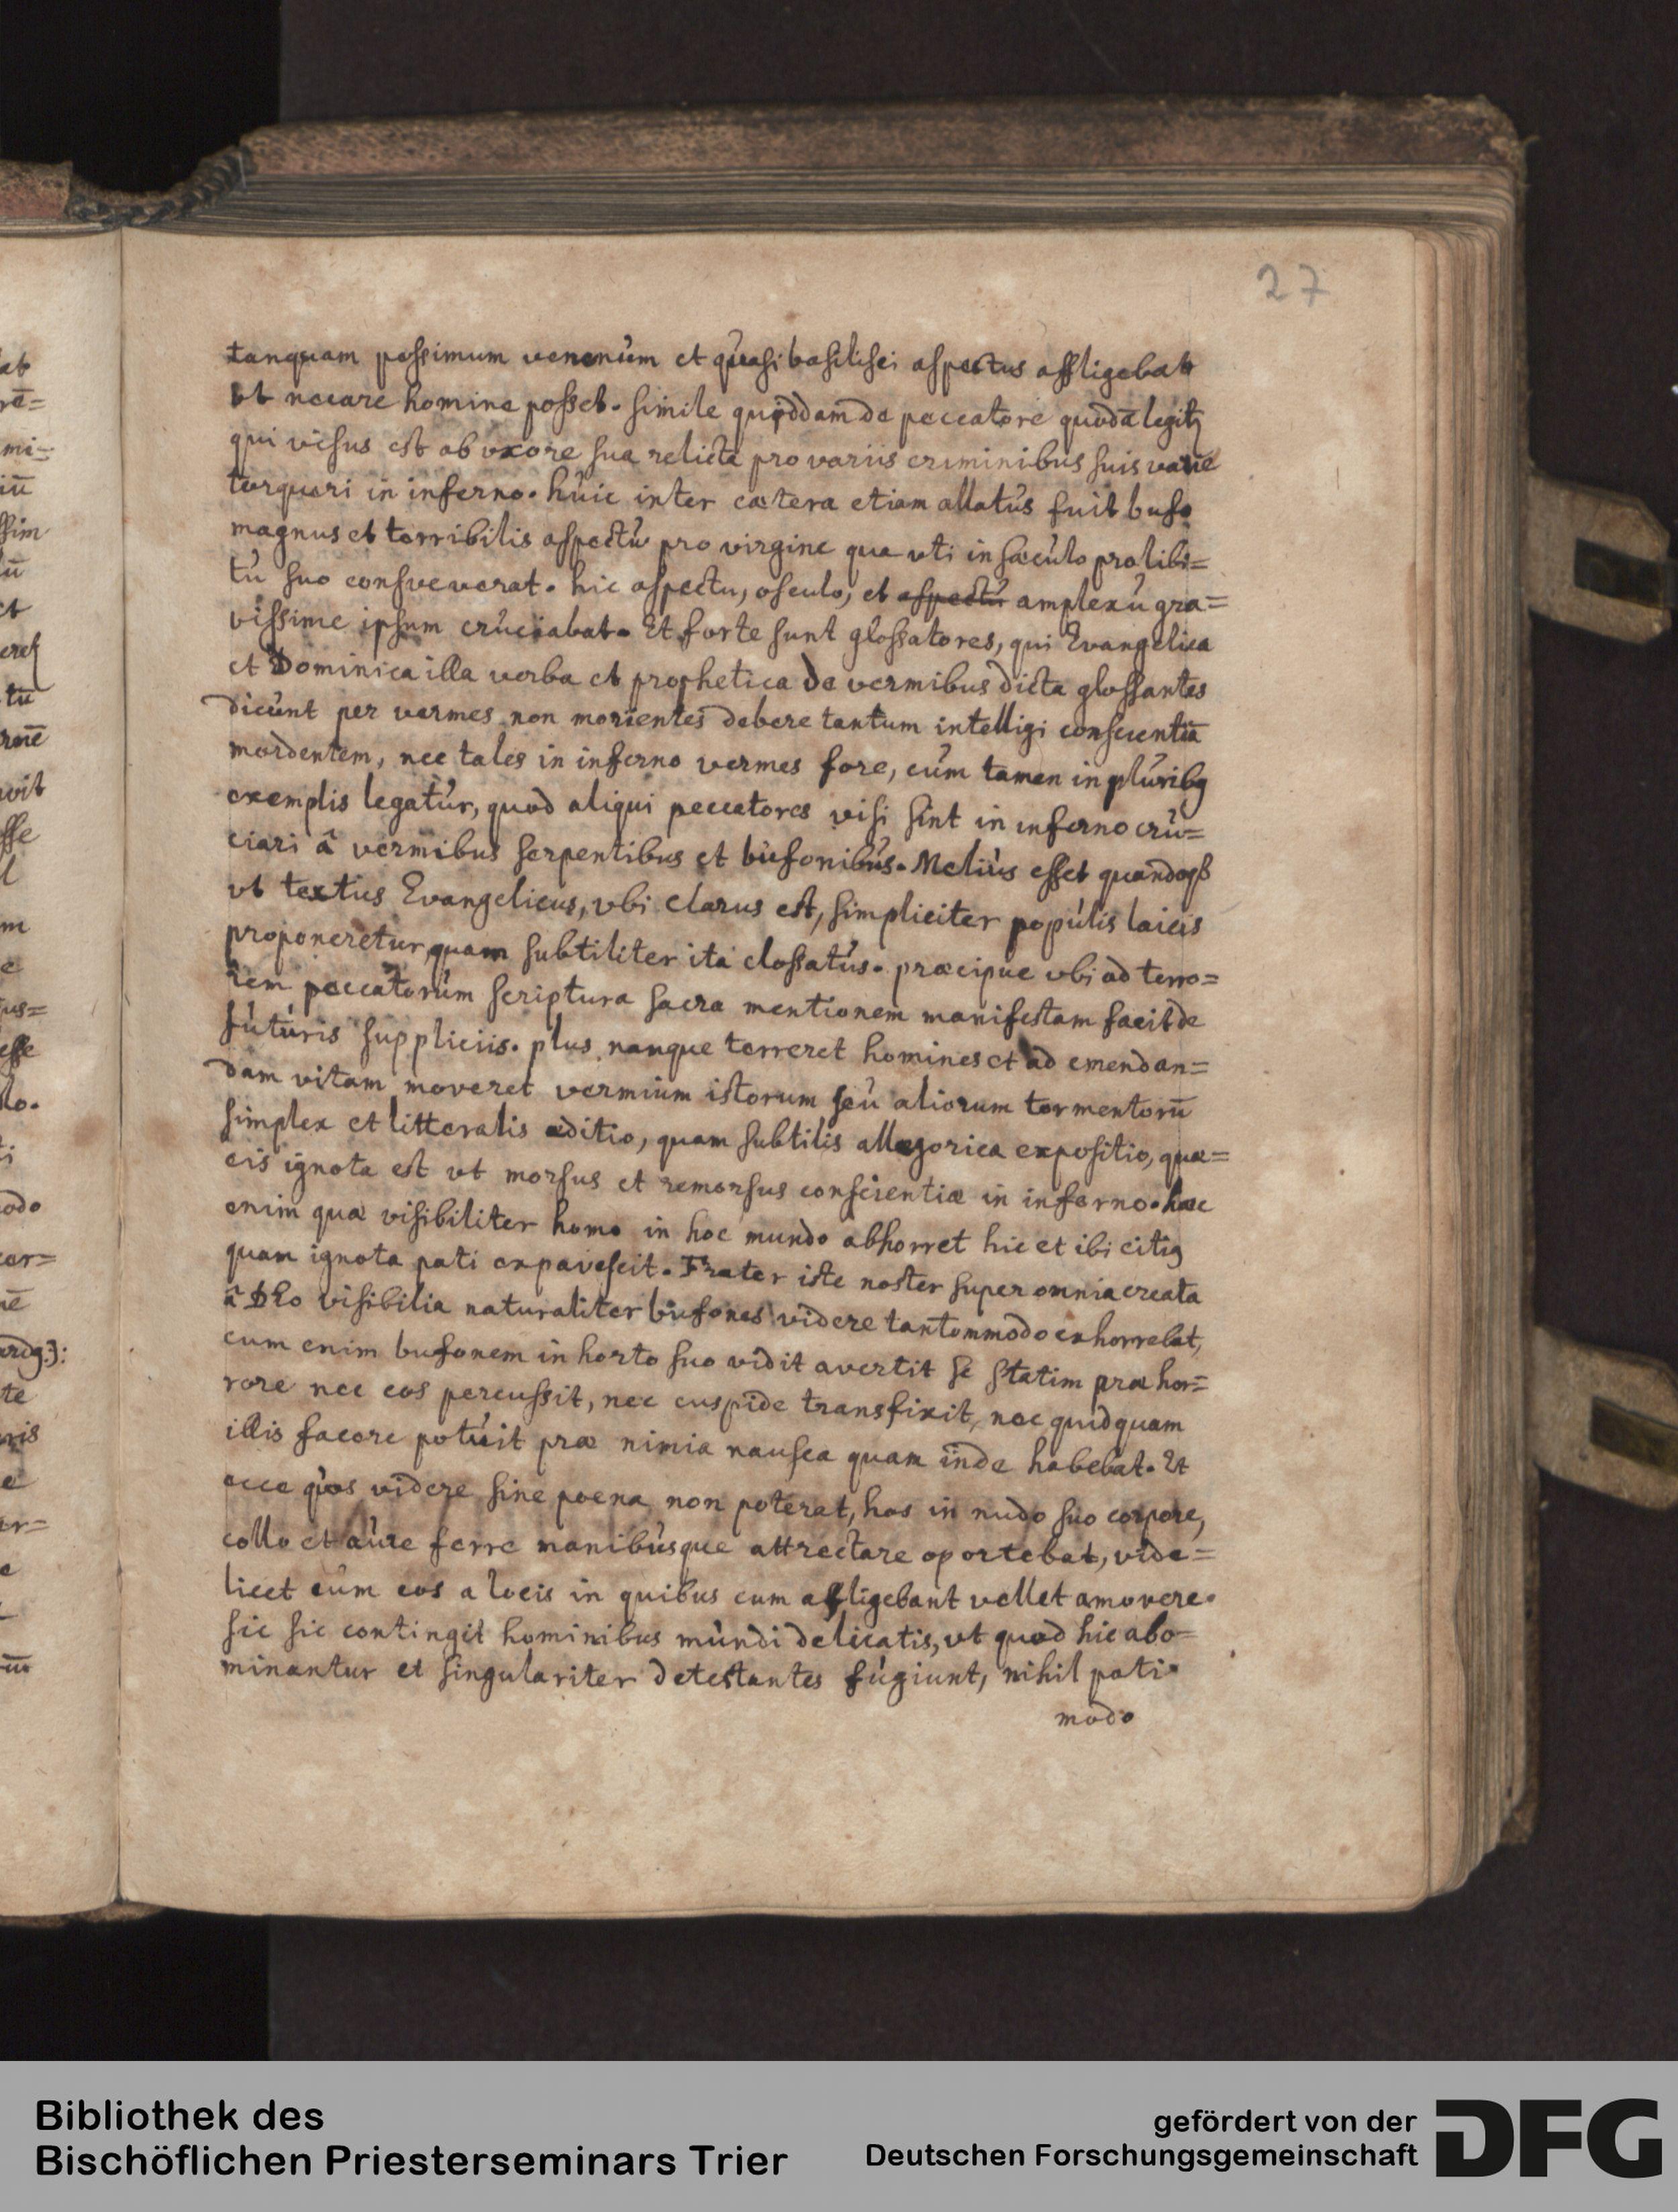 27
tanquam pessimum venenúm et qúasi basilisci aspectus affligebat
vt necare homine posset. simile quoddam de peccatore quodā legitꝫ
qui visus est ab vxore sua relicta pro variis criminibus suis varie
torqueri in inferno. húic inter cætera etiam allatús fuit bufo
magnus et terribilis aspectú pro virgine qua vti in sæcúlo pro libi=
tú suo consveverat. hic aspectu, osculo, et aspectú amplexú gra=
vissime ipsum crúciabat. Et forte sunt glossatores, qui Evangelica
et Dominica illa verba et prophetica de vermibus dicta glossantes
dicúnt per vermes non morientes debere tantum intelligi conscientiā
mordentem, nec tales in inferno vermes fore, cúm tamen in plúribꝯ
exemplis legatúr, quod aliqui peccatores visi sint in inferno crú=
ciari â vermibus serpentibus et búfonibús. Meliús esset quandoqꝫ
vt textus Evangelicus, vbi clarus est, simpliciter popúlis laicis
proponeretur quam subtiliter ita clossatús. præcipue vbi ad terro=
rem peccatorúm scriptura sacra mentionem manifestam facit de
fútúris suppliciis. plus nanque terreret homines et ad emendan=
dam vitam moveret vermium istorum seú aliorum tormentorū
simplex et litteralis æditio, quam subtilis allegorica expositio, quæ=
cis ignota est vt morsus et remorsus conscientiæ in inferno. hæc
enim quæ visibiliter homo in hoc mundo abhorret hic et ibi citiꝯ
quam ignota pati expavescit. Frater iste noster super omnia creata
â DEo visibilia naturaliter búfones videre tantummodo exhorrebat,
cum enim bufonem in horto suo vidit avertit se statim præ hor=
rore nec eos percussit, nec cuspide transfixit, nec quidquam
illis facere potúit præ nimia nausea quam inde habebat. Et
ecce qúos videre sine poena non poterat, hos in nudo suo corpore,
collo et aúre ferre manibúsque attrectare oportebat, vide=
licet cúm eos a locis in quibus eum affligebant vellet amovere.
sic sic contingit hominibus múndi delicatis, vt quod hic abo=
minantur et singulariter detestantes fúgiunt, nihil pati
modo
Bibliothek des
Bischöflichen Priesterseminars Trier
gefördert von der
Deutschen Forschungsgemeinschaft
DFG